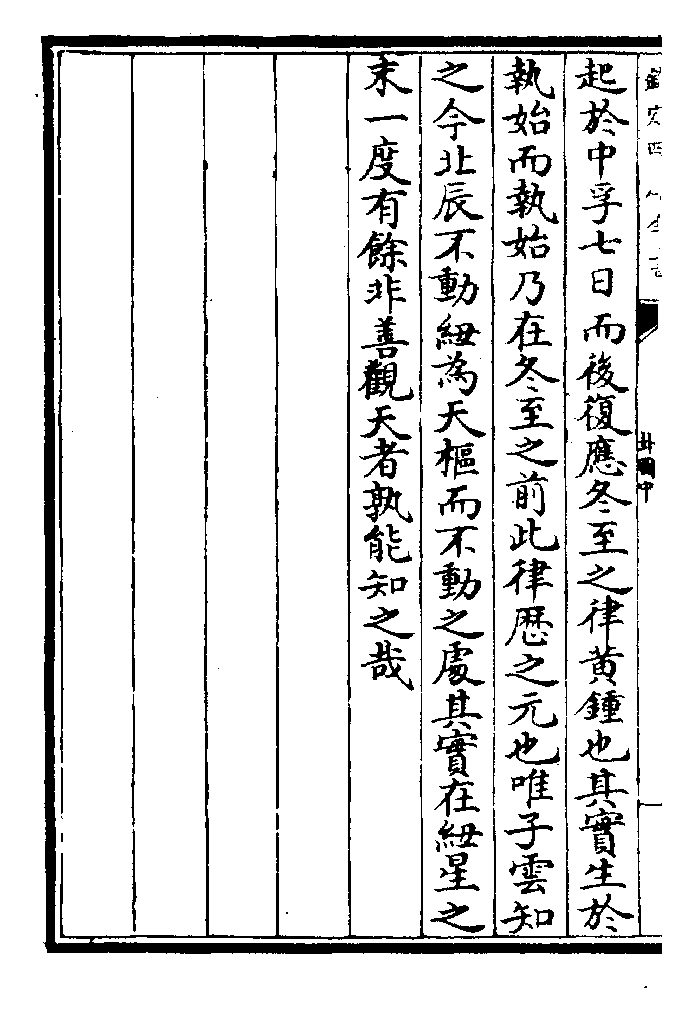 起於中孚七日而後復應冬至之律黄鍾也其實生於
執始而執始乃在冬至之前此律厯之元也唯子雲知
之今北辰不動紐為天樞而不動之處其實在紐星之
末一度有餘非善觀天者孰能知之哉
卦圖中